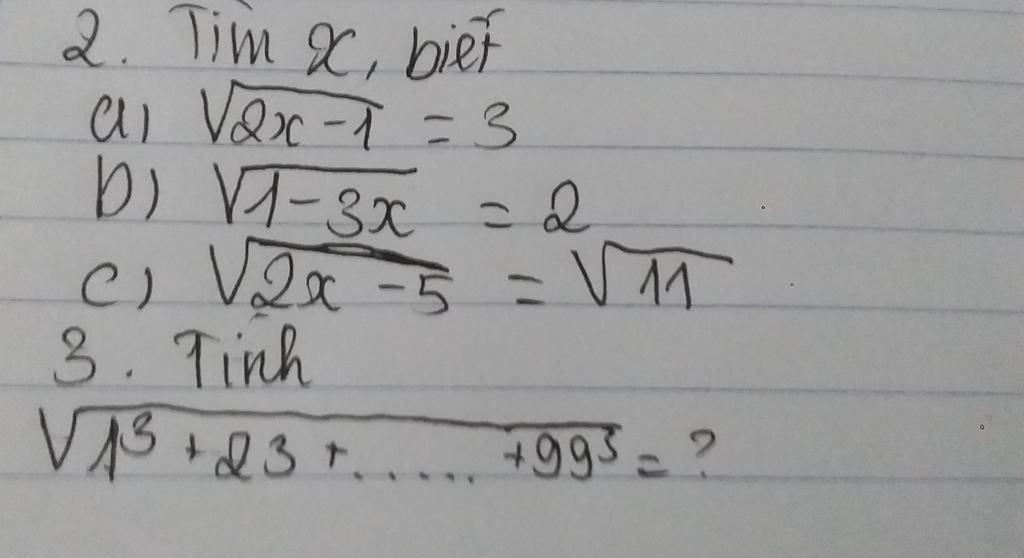 2. Tìm x, biết
a) √2x-1 = 3
b) √1-3x = 2
c) √2x-5 = √11
3. Tính
√1³ + 23 + ...... + 99³ = ?